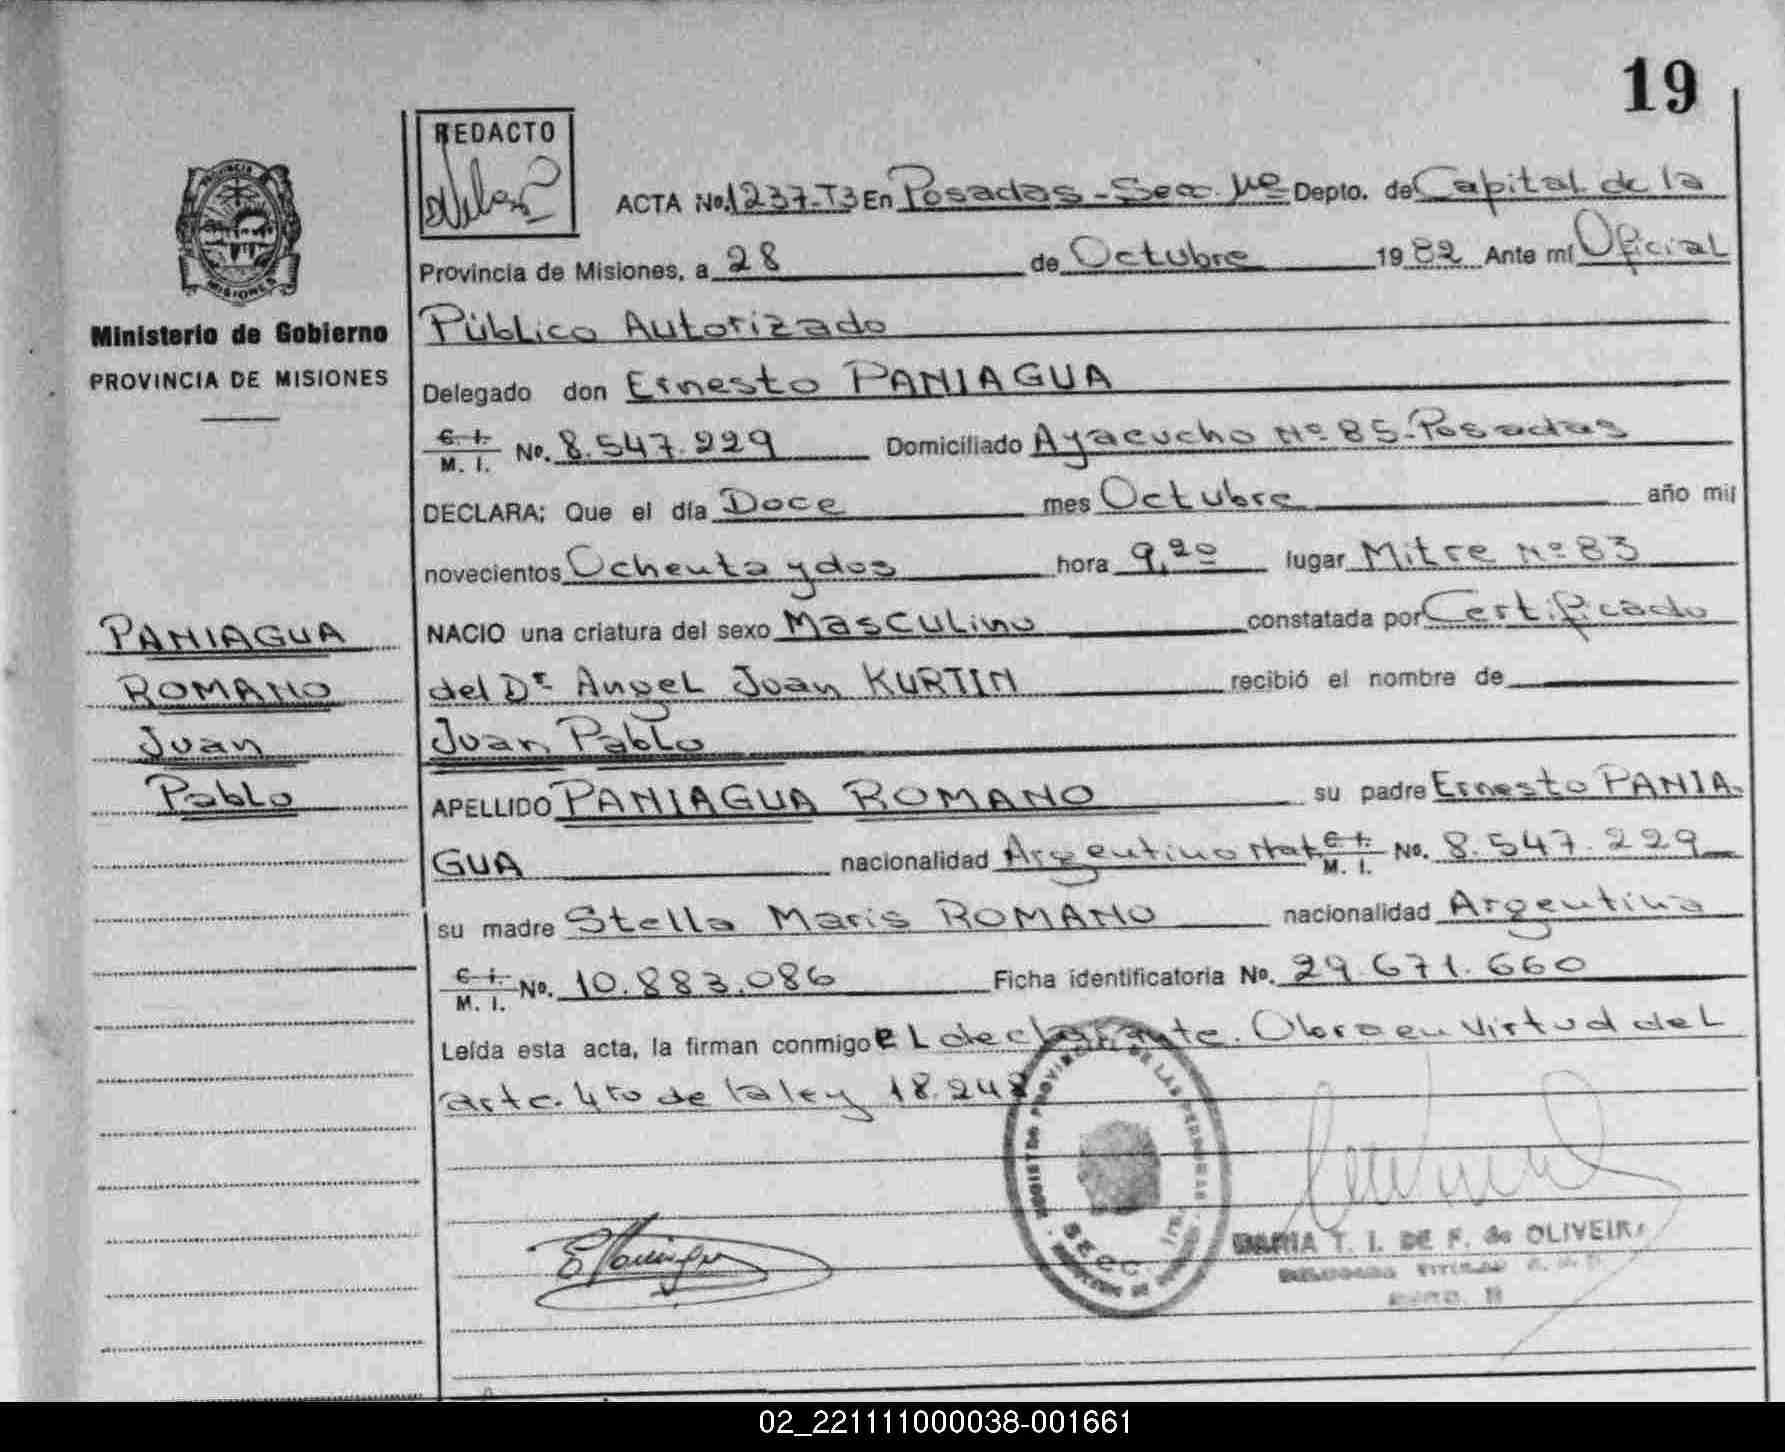 19
REDACTO
ACTA No. 1237-T3 En Posadas - Secc. 1ra Depto. de Capital de la
Provincia de Misiones, a 28 de Octubre 1982 Ante mí Oficial
Público Autorizado
Delegado don Ernesto PANIAGUA
C. I.
M. I. No. 8.547.229 Domiciliado Ayacucho Nº 85-Posadas
DECLARA; Que el día Doce mes Octubre año mil
novecientos Ochenta y dos hora 9,20 lugar Mitre Nº 83
NACIO una criatura del sexo Masculino constatada por Certificado
del Dr Angel Juan KURTIN recibió el nombre de
Juan Pablo
APELLIDO PANIAGUA ROMANO su padre Ernesto PANIA-
GUA nacionalidad Argentino Nat C. I.
M. I. No. 8.547.229
su madre Stella Maris ROMANO nacionalidad Argentina
C. I.
M. I. No. 10.883.086 Ficha identificatoria No. 29.671.660
Leída esta acta, la firman conmigo el declarante. Obra en virtud del
artc. 4to de la ley 18.248
PROVINCIA
MISIONES
Ministerio de Gobierno
PROVINCIA DE MISIONES
PANIAGUA
ROMANO
Juan
Pablo
REGISTRO PROVINCIAL DE LAS PERSONAS
SECC. 1RA.
MARIA T. I. DE F. de OLIVEIRA
02_221111000038-001661